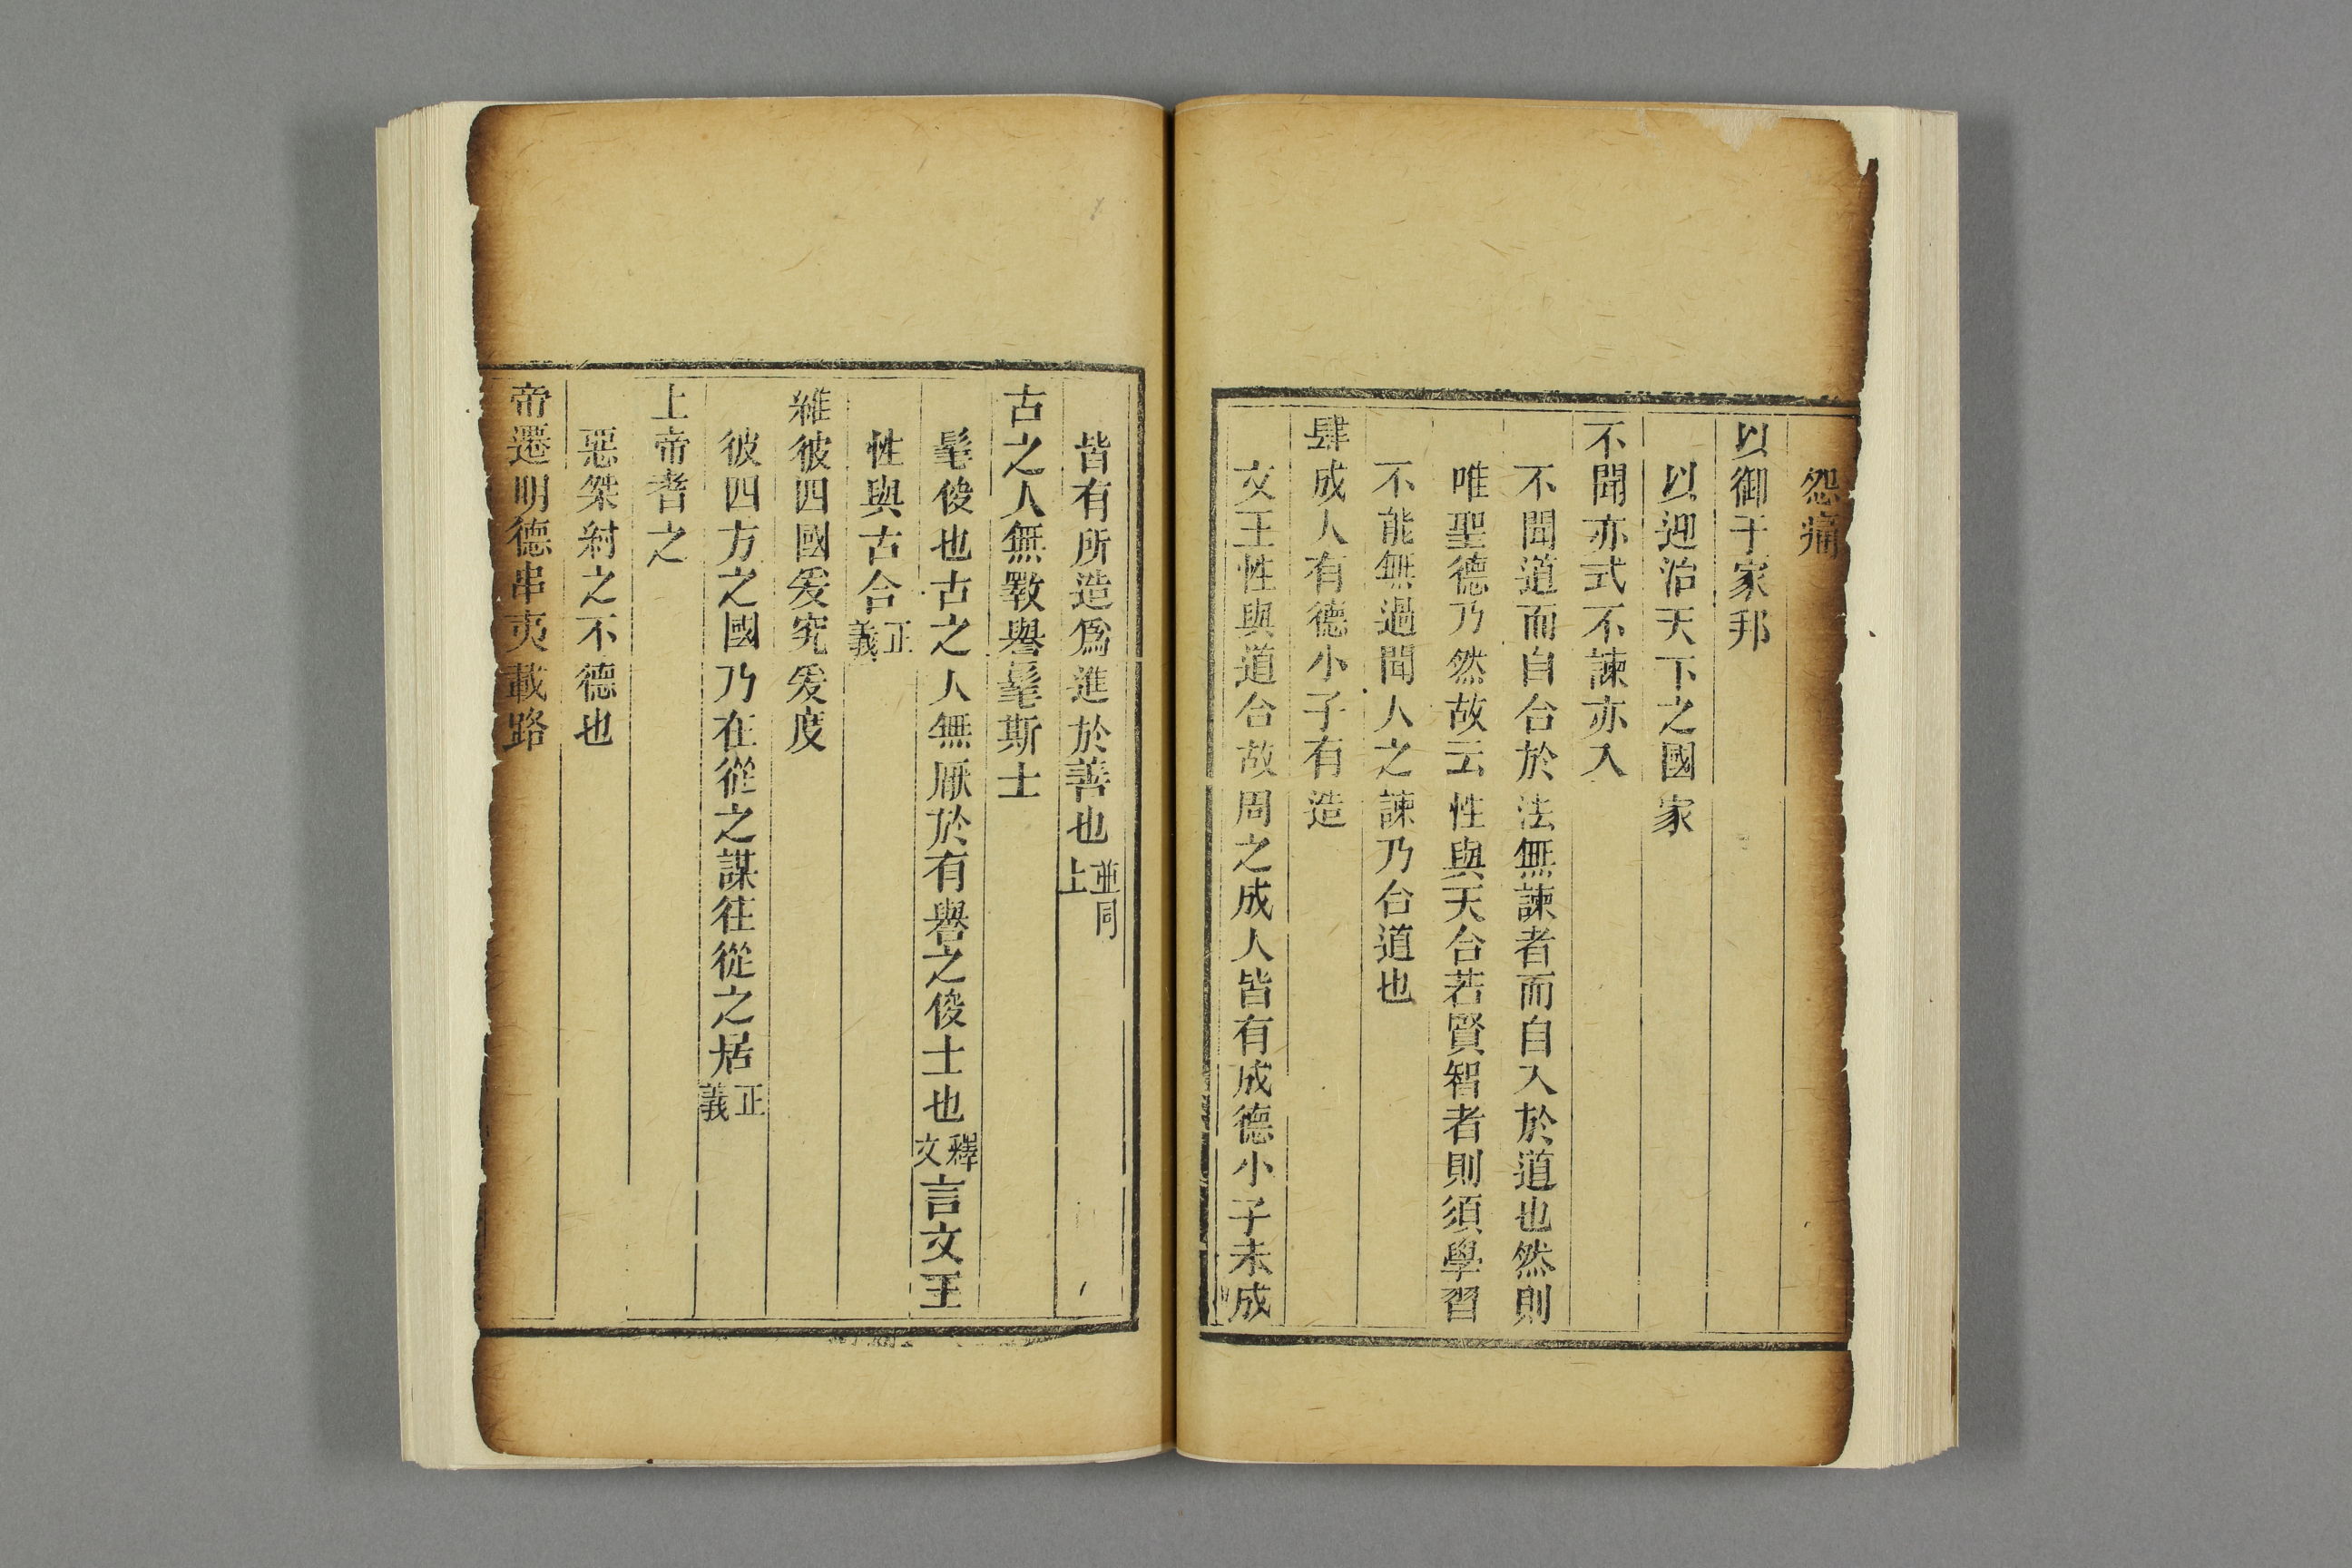 怨痛
以御于家邦
以迎治天下之國家
不聞亦式不諫亦入
不聞道而自合於法無諫者而自入於道也然則
唯聖德乃然故云性與天合若賢智者則須學習
不能無過聞人之諫乃合道也
肆成人有德小子有造
文王性與道合故周之成人皆有成德小子未成
皆有所造爲進於善也並同上
古之人無斁譽髦斯士
髦俊也古之人無厭於有譽之俊士也釋文言文王
性與古合正義
維彼四國爰究爰度
彼四方之國乃在從之謀往從之居正義
上帝耆之
惡桀紂之不德也
帝遷明德串夷載路